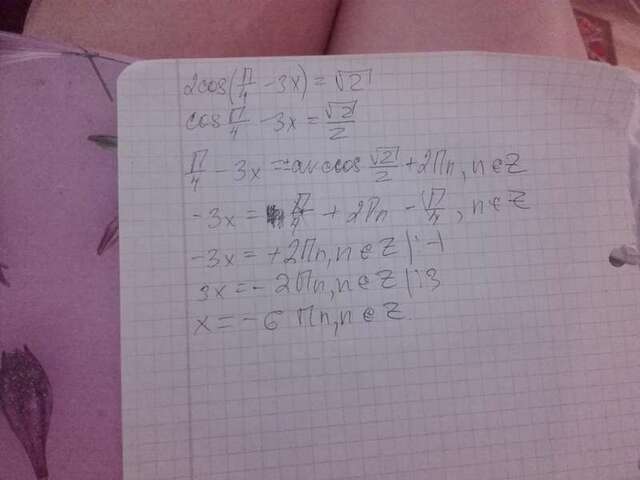 2cos(π/4 - 3x) = √2
cos π/4 - 3x = √2/2
π/4 - 3x = ±arccos √2/2 + 2πn, n ∈ Z
-3x = π/4 + 2πn - π/4, n ∈ Z
-3x = +2πn, n ∈ Z |: -1
3x = -2πn, n ∈ Z |: 3
x = -6 πn, n ∈ Z